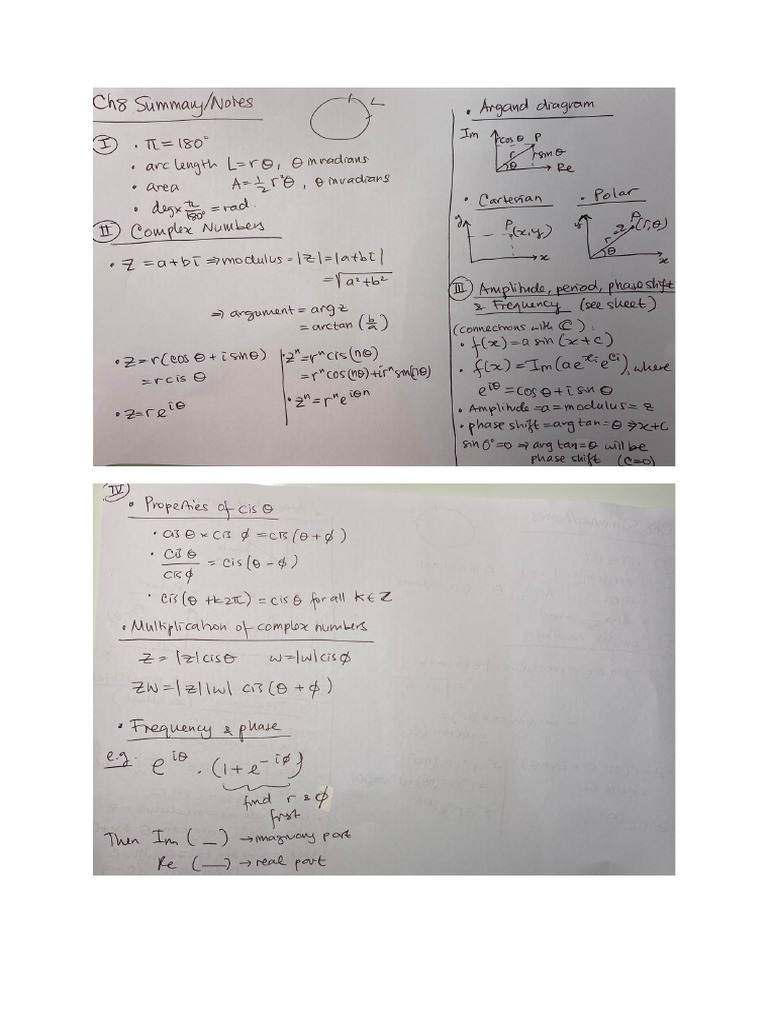 Ch8 Summary/Notes
L
I
• π = 180°
• arc length L = rθ, θ in radians
• area A = 1/2 r²θ, θ in radians
• deg × π/180° = rad.
II Complex Numbers
• z = a + bi ⇒ modulus = |z| = |a+bi|
= √(a² + b²)
⇒ argument = arg z
= arctan (b/a)
• z = r(cos θ + i sin θ)
= r cis θ
• z = re^(iθ)
• zⁿ = rⁿ cis(nθ)
= rⁿ cos(nθ) + i rⁿ sin(nθ)
• zⁿ = rⁿ e^(iθn)
• Argand diagram
Im rcos θ P
r rsin θ
θ Re
• Cartesian • Polar
y P (x, y) x
y P (r, θ) r θ x
III Amplitude, period, phase shift
& Frequency (see sheet)
(connections with ℂ)
• f(x) = a sin (x + c)
• f(x) = Im(ae^(xi) e^(ci)), where
e^(iθ) = cos θ + i sin θ
• Amplitude = a = modulus = z
• phase shift = arg tan = θ ⇒ x + c
sin 0° = 0 ⇒ arg tan = θ will be
phase shift (c = 0)
IV
• Properties of cis θ
• cis θ × cis ϕ = cis (θ + ϕ)
• cis θ / cis ϕ = cis (θ − ϕ)
• cis (θ + k2π) = cis θ for all k ∈ Z
• Multiplication of complex numbers
z = |z| cis θ w = |w| cis ϕ
zw = |z| |w| cis (θ + ϕ)
• Frequency & phase
e.g. e^(iθ) . (1 + e^(−iϕ))
find r & ϕ
first
Then Im ( _ ) → imaginary part
Re ( __ ) → real part